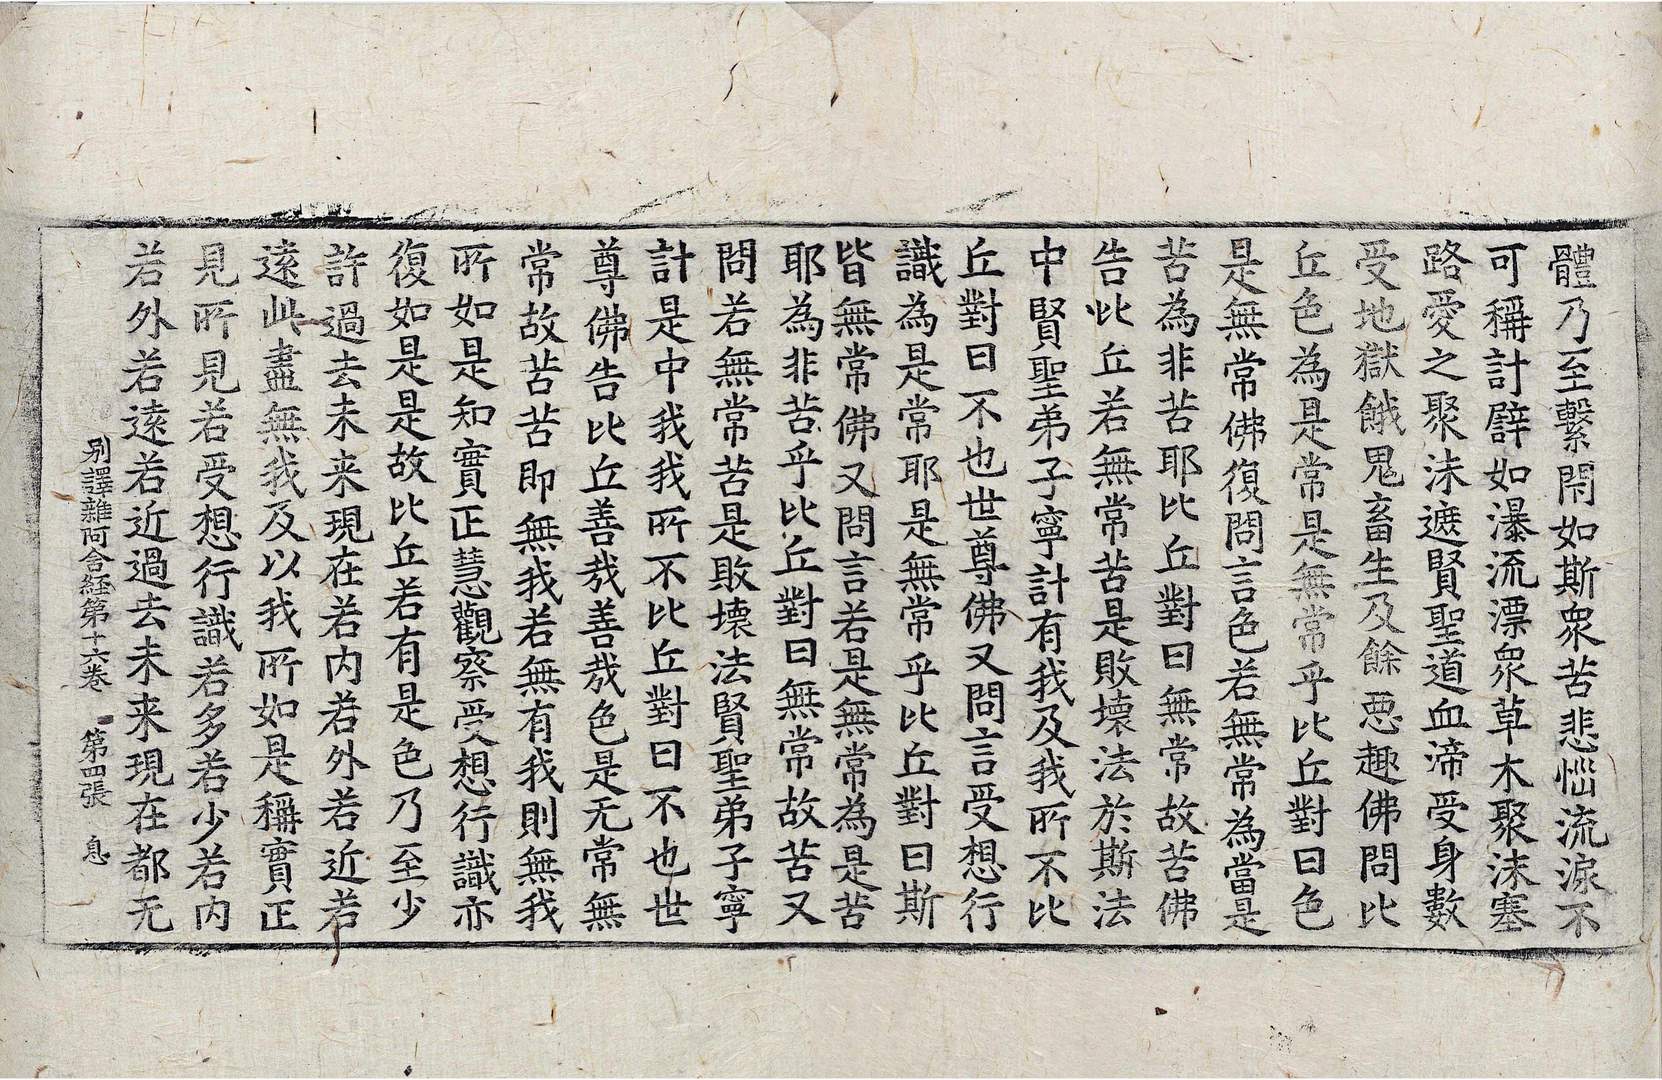 體乃至繫閇如斯衆苦悲惱流淚不
可稱計譬如瀑流漂衆草木聚沫塞
路愛之聚沫遮賢聖道血渧受身數
受地獄餓鬼畜生及餘惡趣佛問比
丘色為是常是無常乎比丘對曰色
是無常佛復問言色若無常為當是
苦為非苦耶比丘對曰無常故苦佛
告比丘若無常苦是敗壞法於斯法
中賢聖弟子寧計有我及我所不比
丘對曰不也世尊佛又問言受想行
識為是常耶是無常乎比丘對曰斯
皆無常佛又問言若是無常為是苦
耶為非苦乎比丘對曰無常故苦又
問若無常苦是敗壞法賢聖弟子寧
計是中我我所不比丘對曰不也世
尊佛告比丘善㢤善㢤色是无常無
常故苦苦即無我若無有我則無我
所如是知實正慧觀察受想行識亦
復如是是故比丘若有是色乃至少
許過去未来現在若内若外若近若
遠此盡無我及以我所如是稱實正
見所見若受想行識若多若少若内
若外若遠若近過去未来現在都无
别譯雜阿含経第十六卷 第四張 息